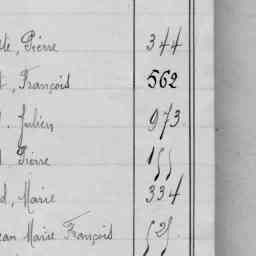 Pierre 344
, François 562
. Julien 973
Pierre 155
d, Marie 334
ean Marie François 525